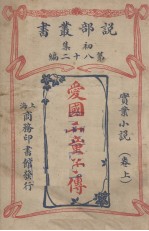 說部叢書
初集
第八十二編
實業小說(卷上)
愛國二童子傳
上海
商務印書館發行